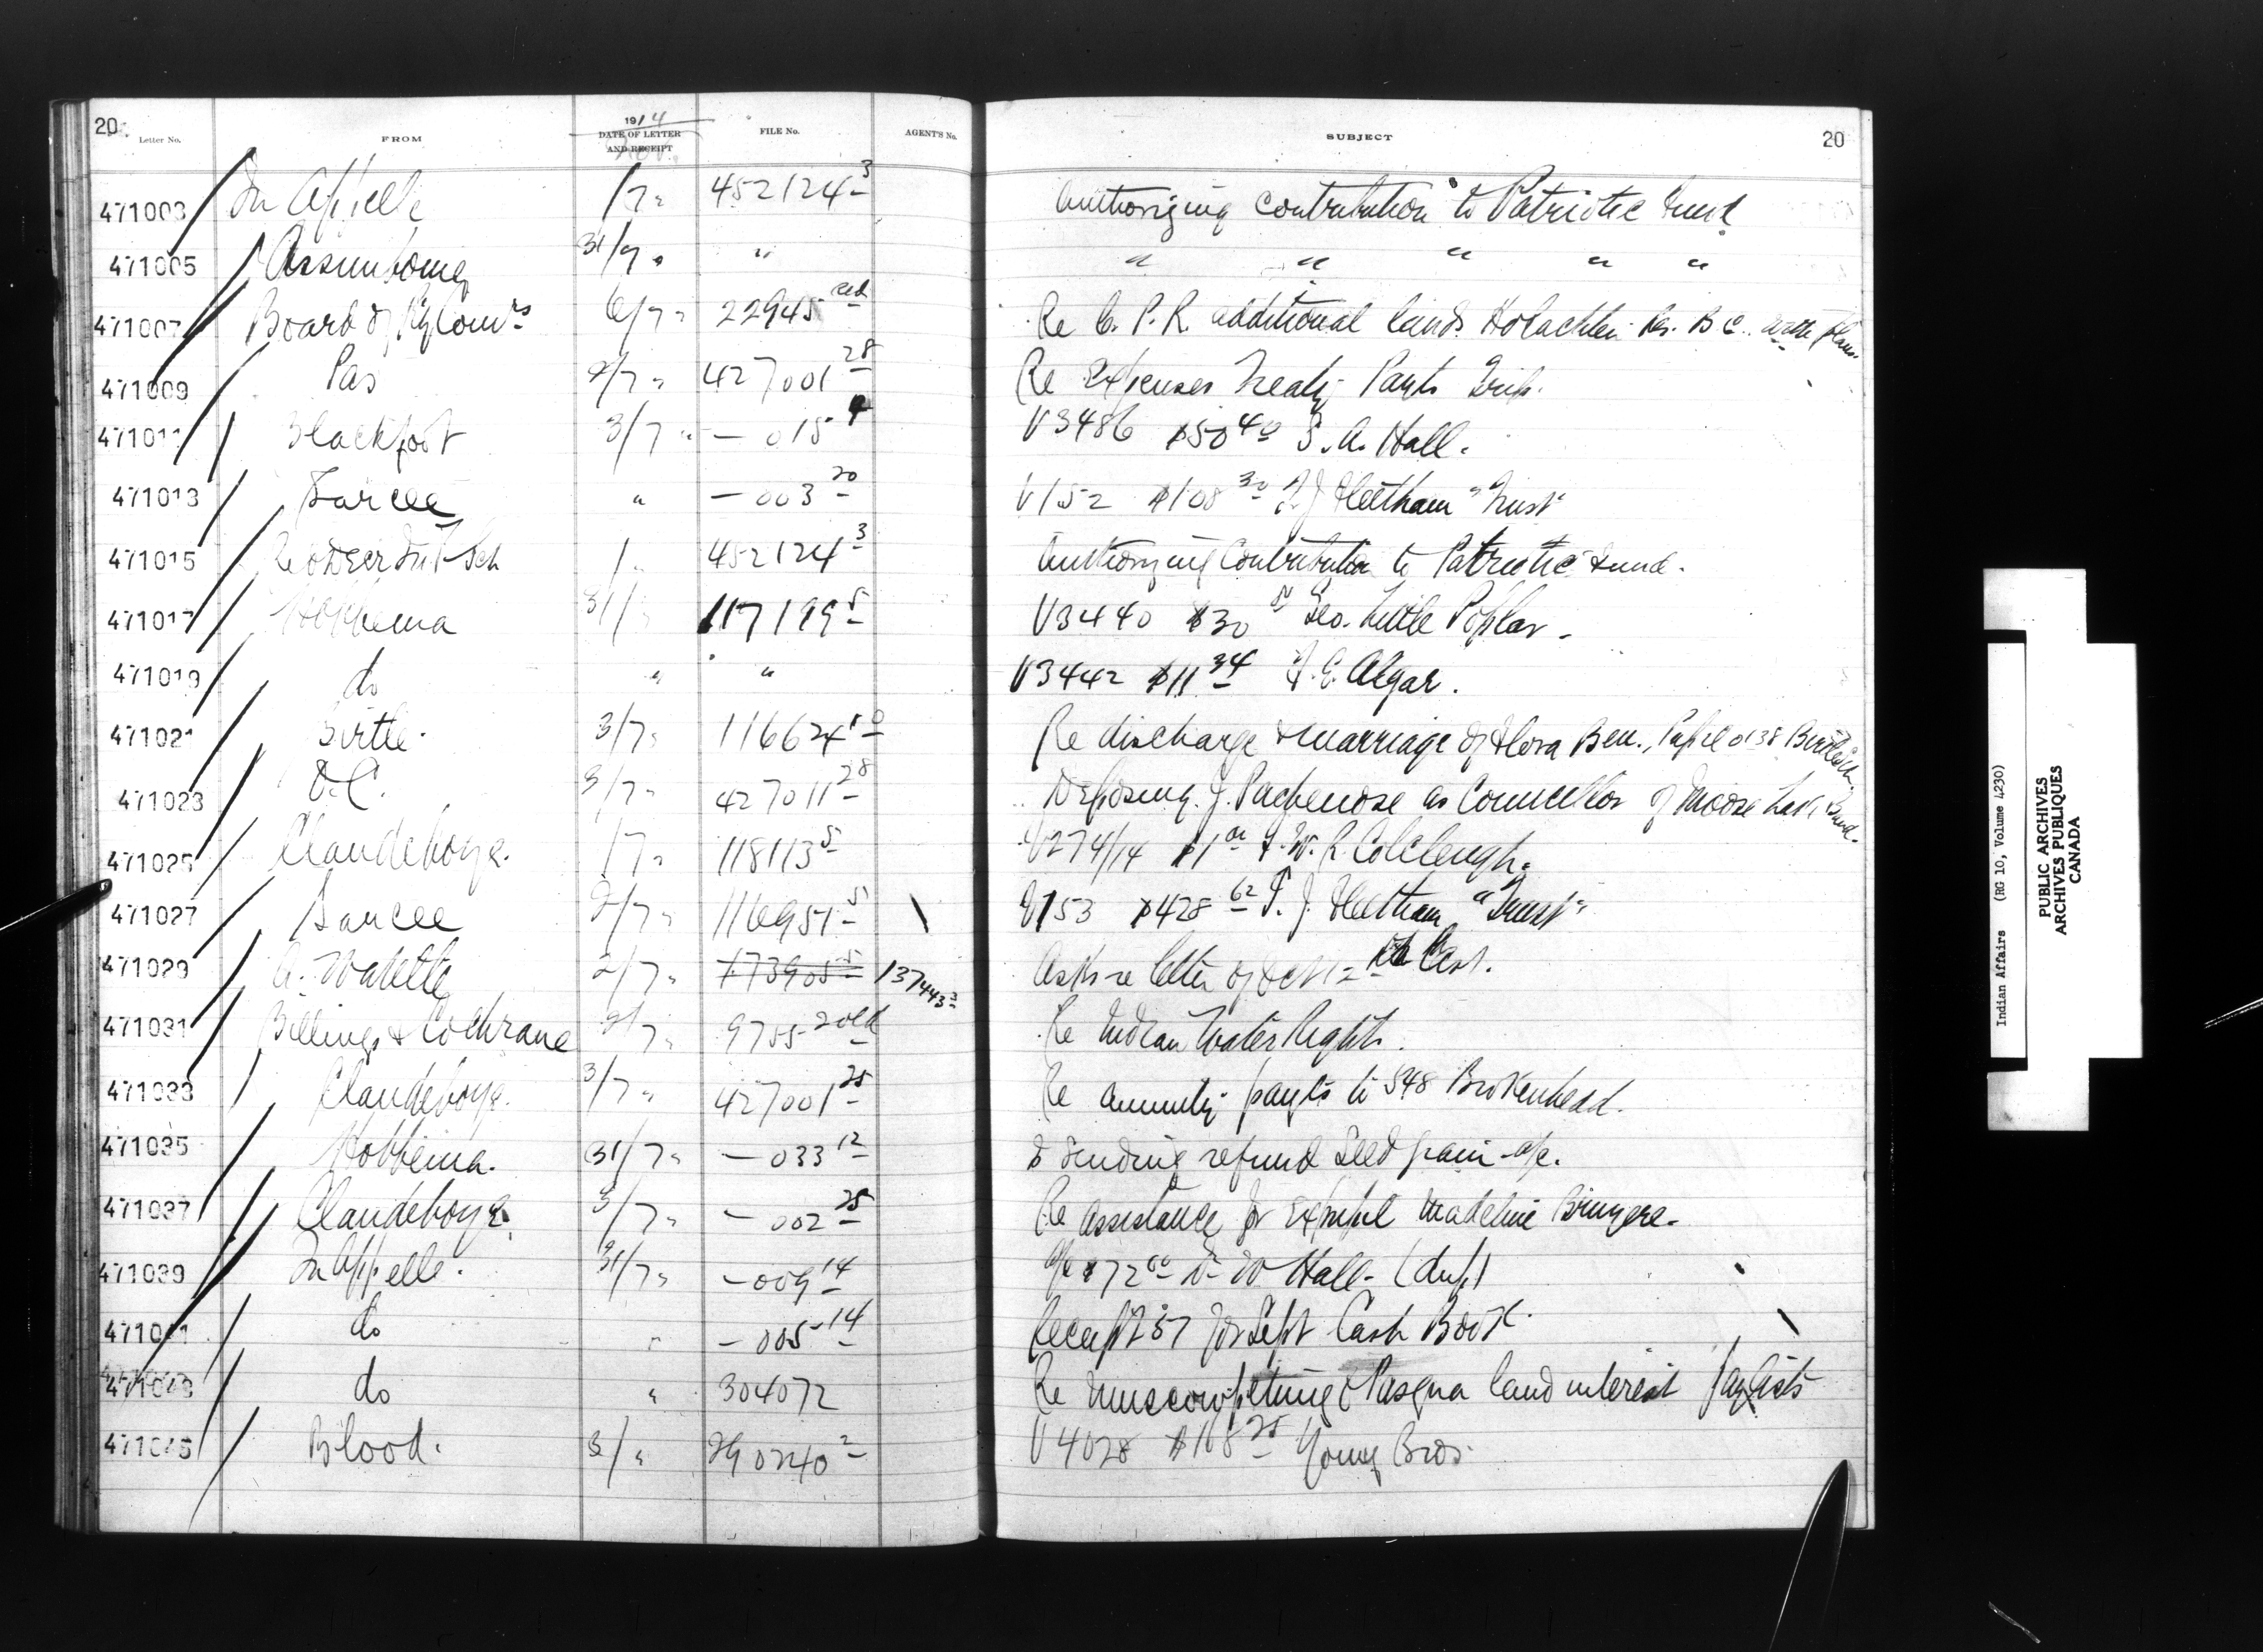 20 Letter No. FROM 1914 DATE OF LETTER AND RECEIPT Nov. FILE No. AGENT'S No. SUBJECT 20
471003 Qu Appelle 1/7 " 452124-3 Authorizing contribution to Patriotic Fund
471005 Assiniboine 31/7 " " " " " " "
471007 Board of Ry Comrs 6/7 " 22945 Re C. P. R. additional lands Res. B.C. with plans.
471009 Pas 2/7 " 427001-28 Re Expenses Treaty Paymts Trip.
471011 Blackfoot 3/7 " — 015-4 V3486 $50 40 S. A. Hall.
471013 Sarcee " — 003-20 V152 $108 30 T. J. Fleetham "Trust"
471015 Red Deer Ind Sch 1 " 452124-3 Authorizing Contribution to Patriotic Fund.
471017 Hobbema 31/ " 117199-5 V3440 $30 Geo. Little Poplar.
471019 do " " V3442 $11 34 F. E. Algar.
471021 Birtle. 3/7 " 116624-10 Re discharge & marriage of Flora Ben., Pupil 0138 Birtle Sch.
471023 D.C. 3/7 " 427011-28 Deposing J. as Councillor of Moose Lake Band.
471025 Clandeboye. 17 " 118113-5 V274/14 $1 00 F. W. R. Colcleugh.
471027 Sarcee 2/7 " 116951-5 V153 $428 62 T. J. Fleetham "Trust"
471029 2/7 " 173905-5 137443-3 Asks re letter of Oct 12th last.
471031 Billings & Cochrane 2/7 " 9755-2 old Re Indian Water Rights.
471033 Clandeboye. 3/7 " 427001-25 Re annuity paymts to 548 Brokenhead.
471035 Hobbema. 31/7 " — 033-12 Sending refund Seed grain a/c.
471037 Clandeboye 3/7 " — 002-25 Re assistance for Expupil Madeline Bruyere.
471039 Qu Appelle. 31/7 " — 009-14 a/c $72 00 W Hall. (dup)
471041 do " — 005-14 Receipt 257 for Sept Cash Book.
471043 do " 304072 Re Muscowpetung & Pasqua land interest paylists
471045 Blood. 3/ " 290240-2 V4028 $168 25 Young Bros.
Indian Affairs (RG 10, Volume 4230)
PUBLIC ARCHIVES
ARCHIVES PUBLIQUES
CANADA